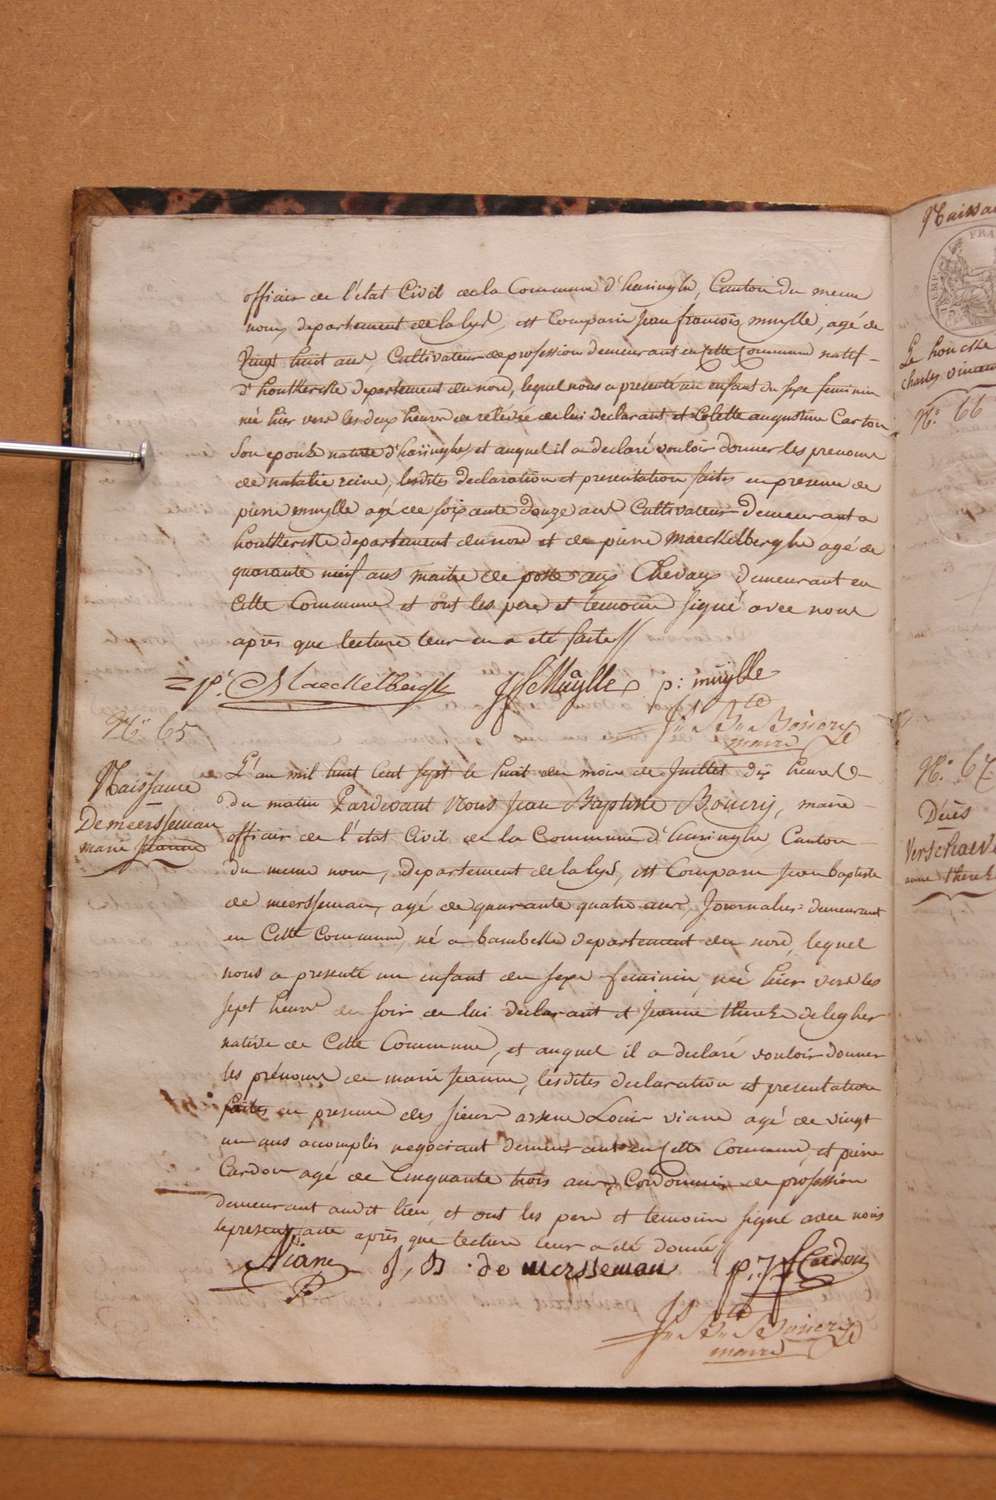 officier de l'état Civil de la Commune d'haringhe, Canton du meme
nom, departement de la lys, est Comparu Jean francois muylle, agé de
Vingt huit ans, Cultivateur de profession demeurant en Cette Commune natif
d'houtkerke departement du nord, lequel nous a presenté un enfant du sexe feminin
né hier vers les deux heures de relevée de lui declarant et Colette augustine Carton
Son epouse native d'haringhe, et auquel il a declaré vouloir donner les prenoms
de natalie reine, lesdites declaration et presentation faites en presence de
pierre muylle agé de soixante douze ans Cultivateur demeurant a
houtkerke departement du nord et de pierre maeckelberghe agé de
quarante neuf ans maitre de poste aux Chevaux demeurant en
Cette Commune et ont les pere et temoins signé avec nous
après que lecture leur en a été faite //
= P. Maeckelbergh J f Muylle p: muylle
Jn Bte Bouery
maire
N.° 65
Naissance
De meersseman
marie jeanne
L'an mil huit Cent sept le huit du mois de Juillet dix heures
du matin Pardevant Nous Jean Baptiste Bouery, maire
officier de l'état Civil de la Commune d'haringhe, Canton
du meme nom, departement de la lys, est Comparu Jean baptiste
de meersseman, agé de quarante quatre ans Journalier demeurant
en Cette Commune, né a bambeke departement du nord, lequel
nous a presenté un enfant du sexe feminin, né hier vers les
sept heures du soir de lui declarant et Jeanne therese delegher
native de Cette Commune, et auquel il a declaré vouloir donner
les prénoms de marie Jeanne, lesdites declaration et presentation
faites en presence des sieurs arsene Louis viane agé de vingt
un ans acomplis negociant demeurant en Cette Commune, et pierre
Cardon agé de Cinquante trois ans Cordonnier de profession
demeurant audit lieu, et ont les pere et temoins signé avec nous
le present acte après que lecture leur a été donnée
AViane J, B. de mersseman p. J Cardon
Jn Bte Bouery
maire
Naissa
FRA
Le houcke
Charles vincent
N.° 66
N.° 67
Verschaeve
anne therese